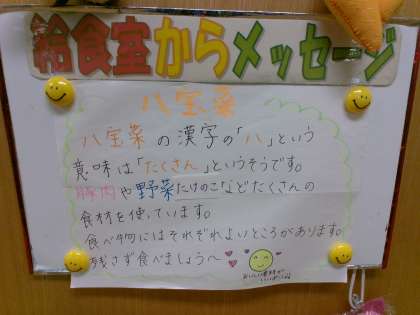 給食室からメッセージ
八宝菜
八宝菜の漢字の「八」という
意味は「たくさん」というそうです。
豚肉や野菜たけのこなどたくさんの
食材を使っています。
食べ物にはそれぞれよいところがあります。
残さず食べましょう〜